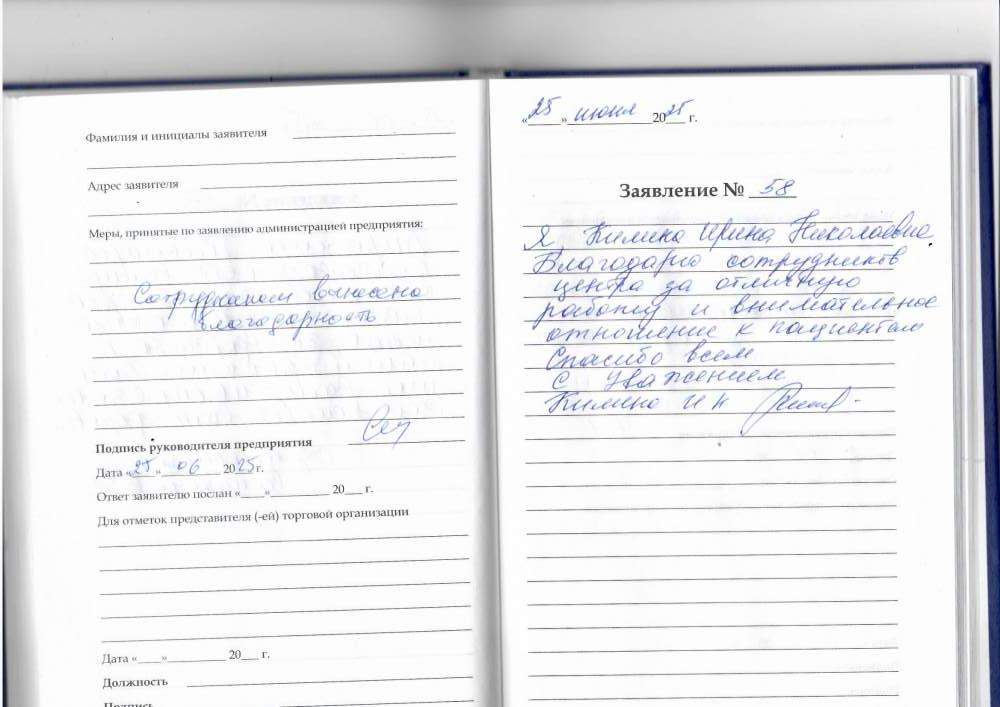 Фамилия и инициалы заявителя
Адрес заявителя
Меры, принятые по заявлению администрацией предприятия:
Сотрудникам вынесена
благодарность
Подпись руководителя предприятия
Дата «25» 06 2025 г.
Ответ заявителю послан «___»_________ 20___ г.
Для отметок представителя (-ей) торговой организации
Дата «____»_________ 20___ г.
Должность
Подпись
«25» июня 2025 г.
Заявление № 58
Я, Ирина Николаевна
Благодарю сотрудников
центра за отличную
работу и внимательное
отношение к пациентам
Спасибо всем
С уважением
И Н